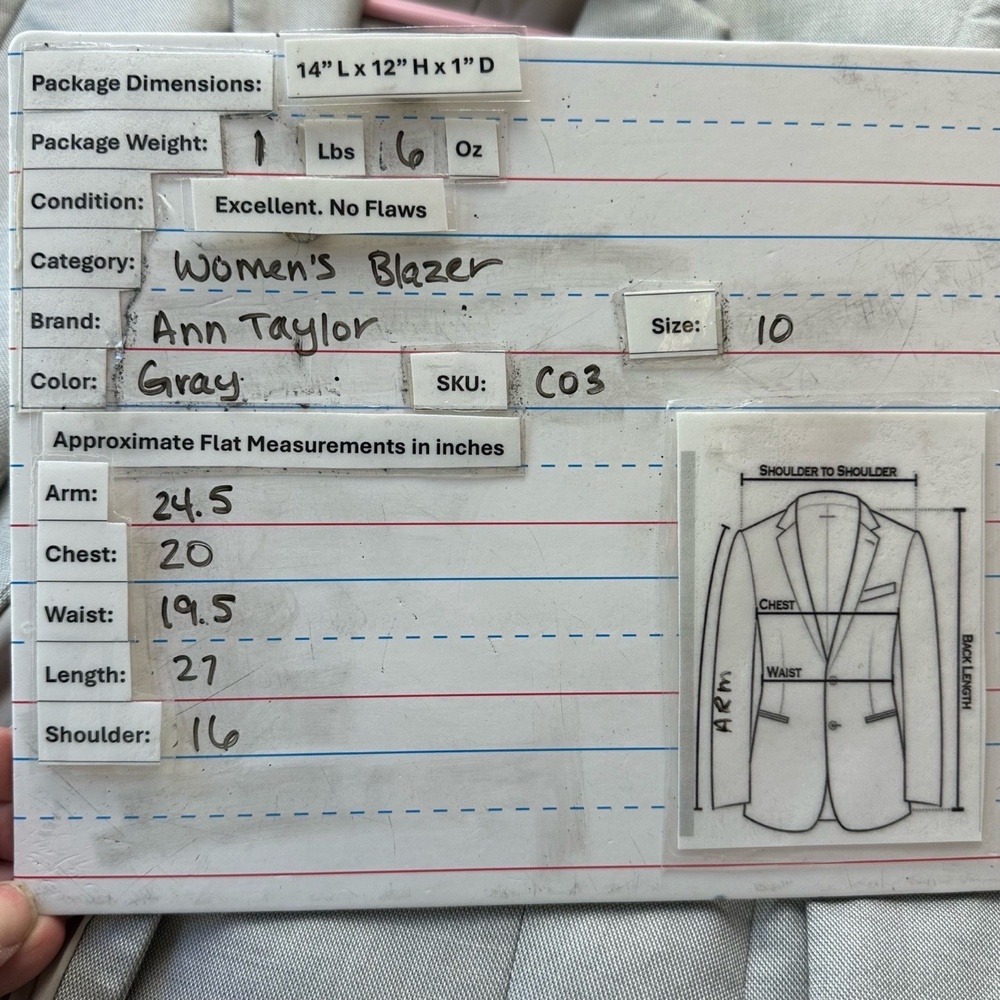 Package Dimensions: 14” L x 12” H x 1” D
Package Weight: 1 Lbs 6 Oz
Condition: Excellent. No Flaws
Category: Women's Blazer
Brand: Ann Taylor Size: 10
Color: Gray SKU: C03
Approximate Flat Measurements in inches
Arm: 24.5
Chest: 20
Waist: 19.5
Length: 27
Shoulder: 16
SHOULDER TO SHOULDER
CHEST
WAIST
ARM
BACK LENGTH